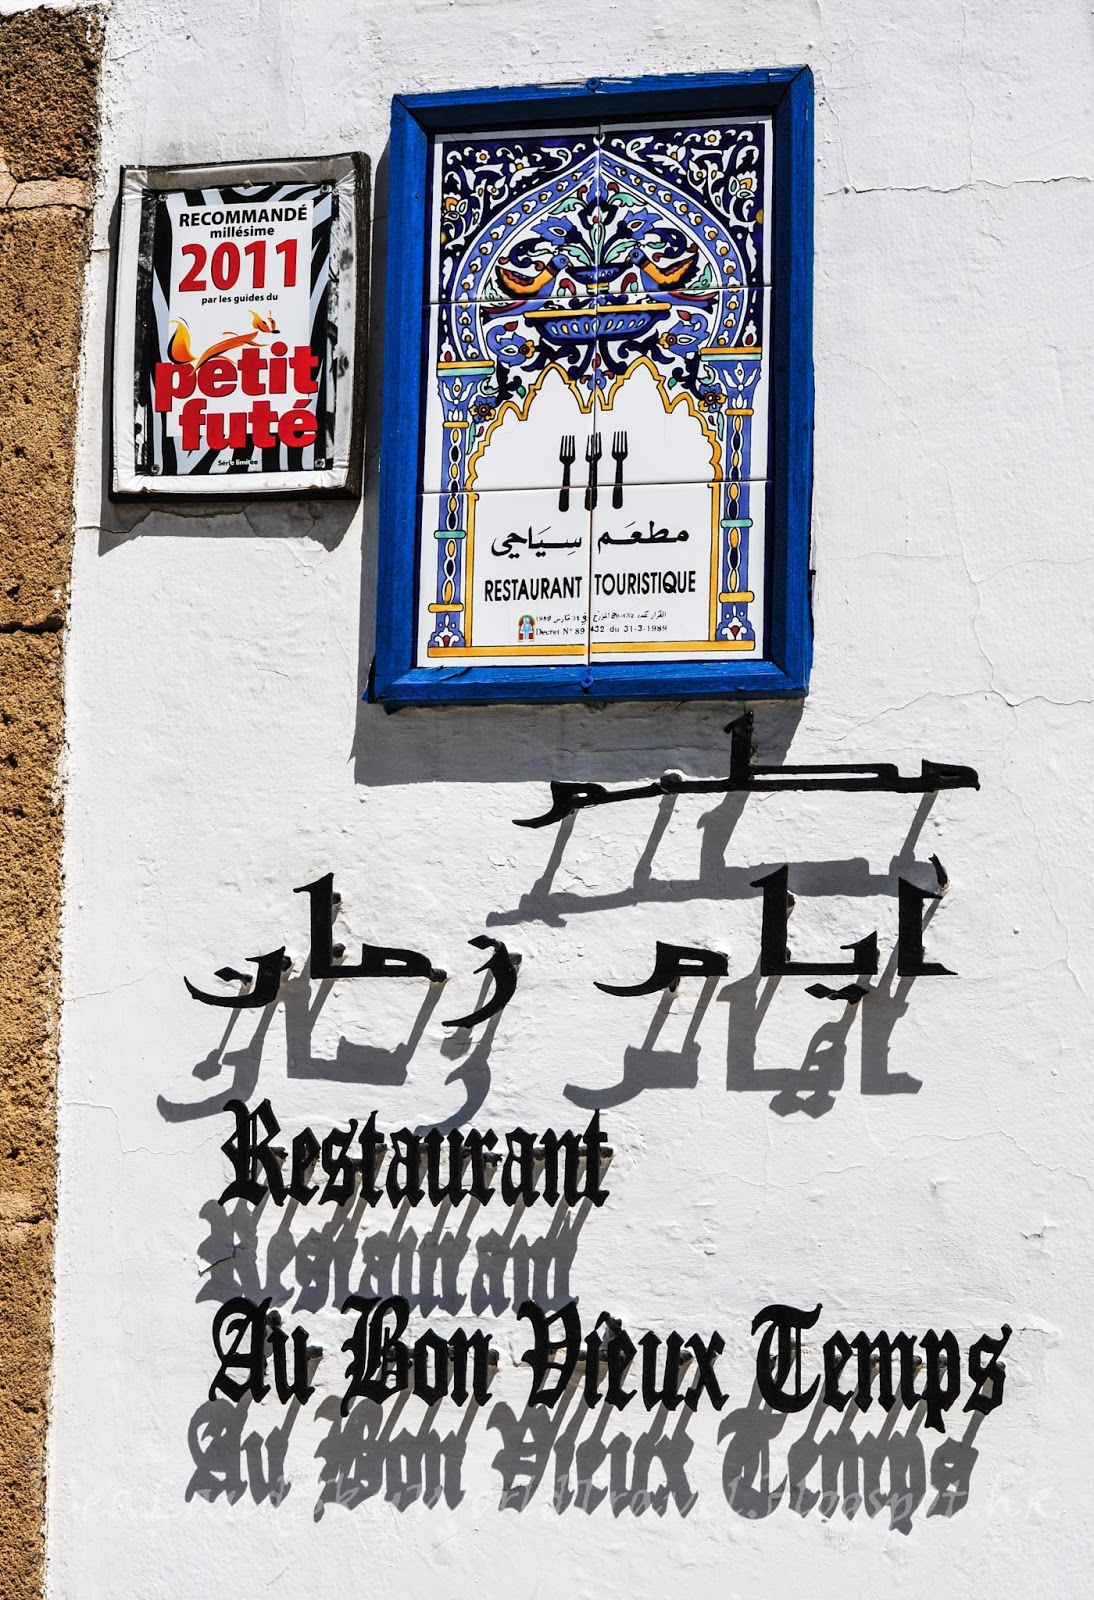 RECOMMANDÉ
millésime
2011
par les guides du
petit
futé
Série limitée
مطعَم سِيَاحِي
RESTAURANT TOURISTIQUE
القرار عدد 89.432 المؤرخ في 31 مارس 1989
Decret N° 89 432 du 31-3-1989
مطعم
أيام زمان
Restaurant
Au Bon Vieux Temps